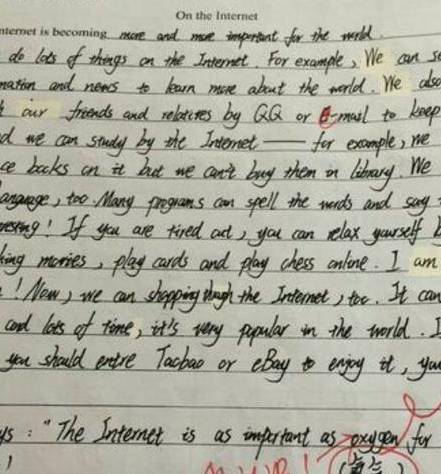 On the Internet
nternet is becoming more and more important for the world.
do lots of things on the Internet. For example, We can se
mation and news to learn more about the world. We also
our friends and relatives by QQ or E-mail to keep
d we can study by the Internet — for example, we
ce books on it but we can't buy them in library. We
language, too. Many programs can spell the words and say
resting! If you are tired out, you can relax yourself b
hing movies, play cards and play chess online. I am
! Now, we can shopping though the Internet, too. It can
and lots of time, it's very popular in the world. I
you should entre Taobao or eBay to enjoy it, you
ys: "The Internet is as important as oxygen for
!